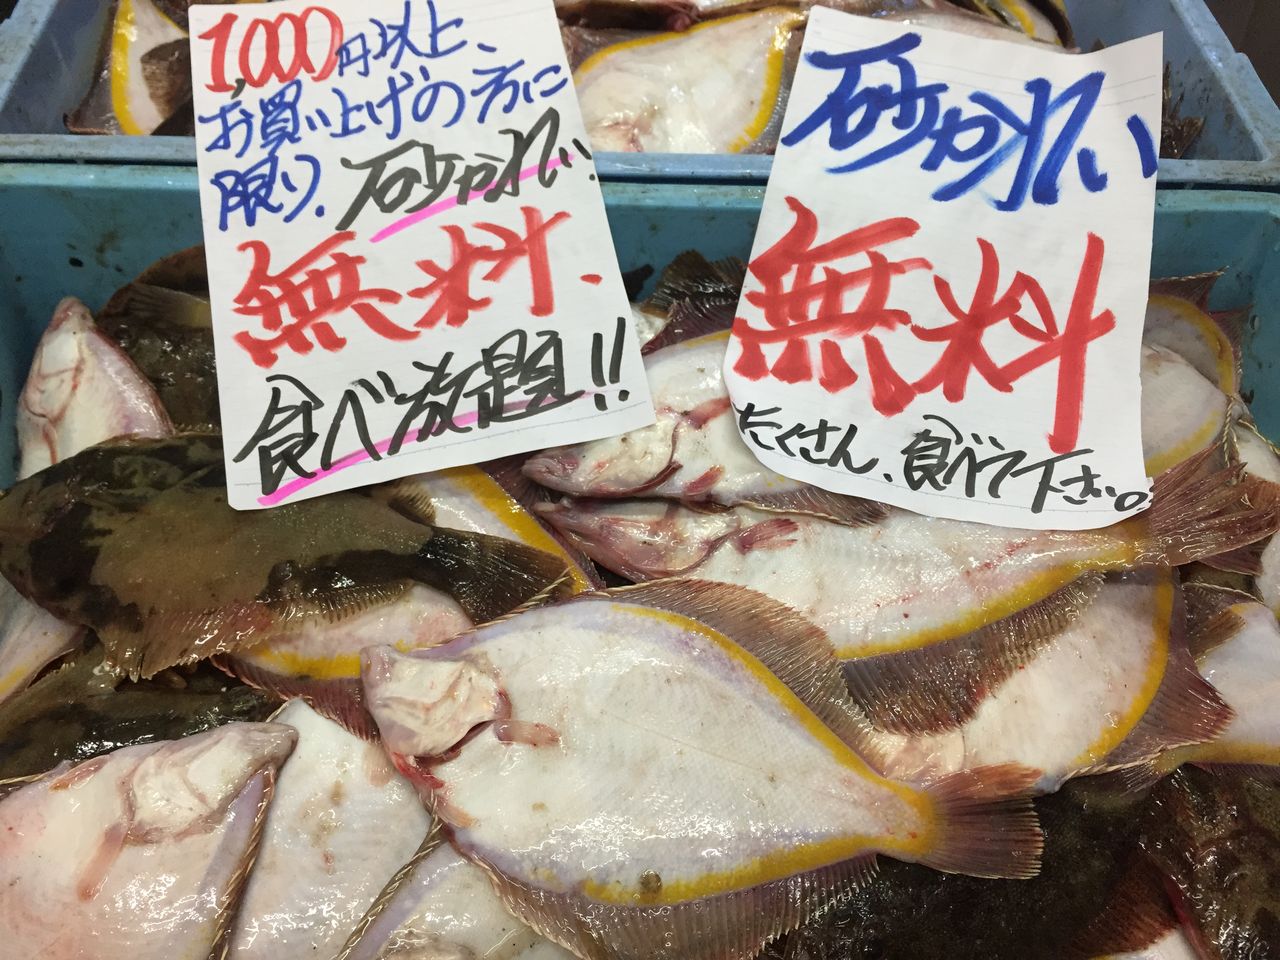 1,000円以上、
お買い上げの方に
限り、砂かれい
無料、
食べ放題!!
砂かれい
無料
たくさん、食べて下さい。